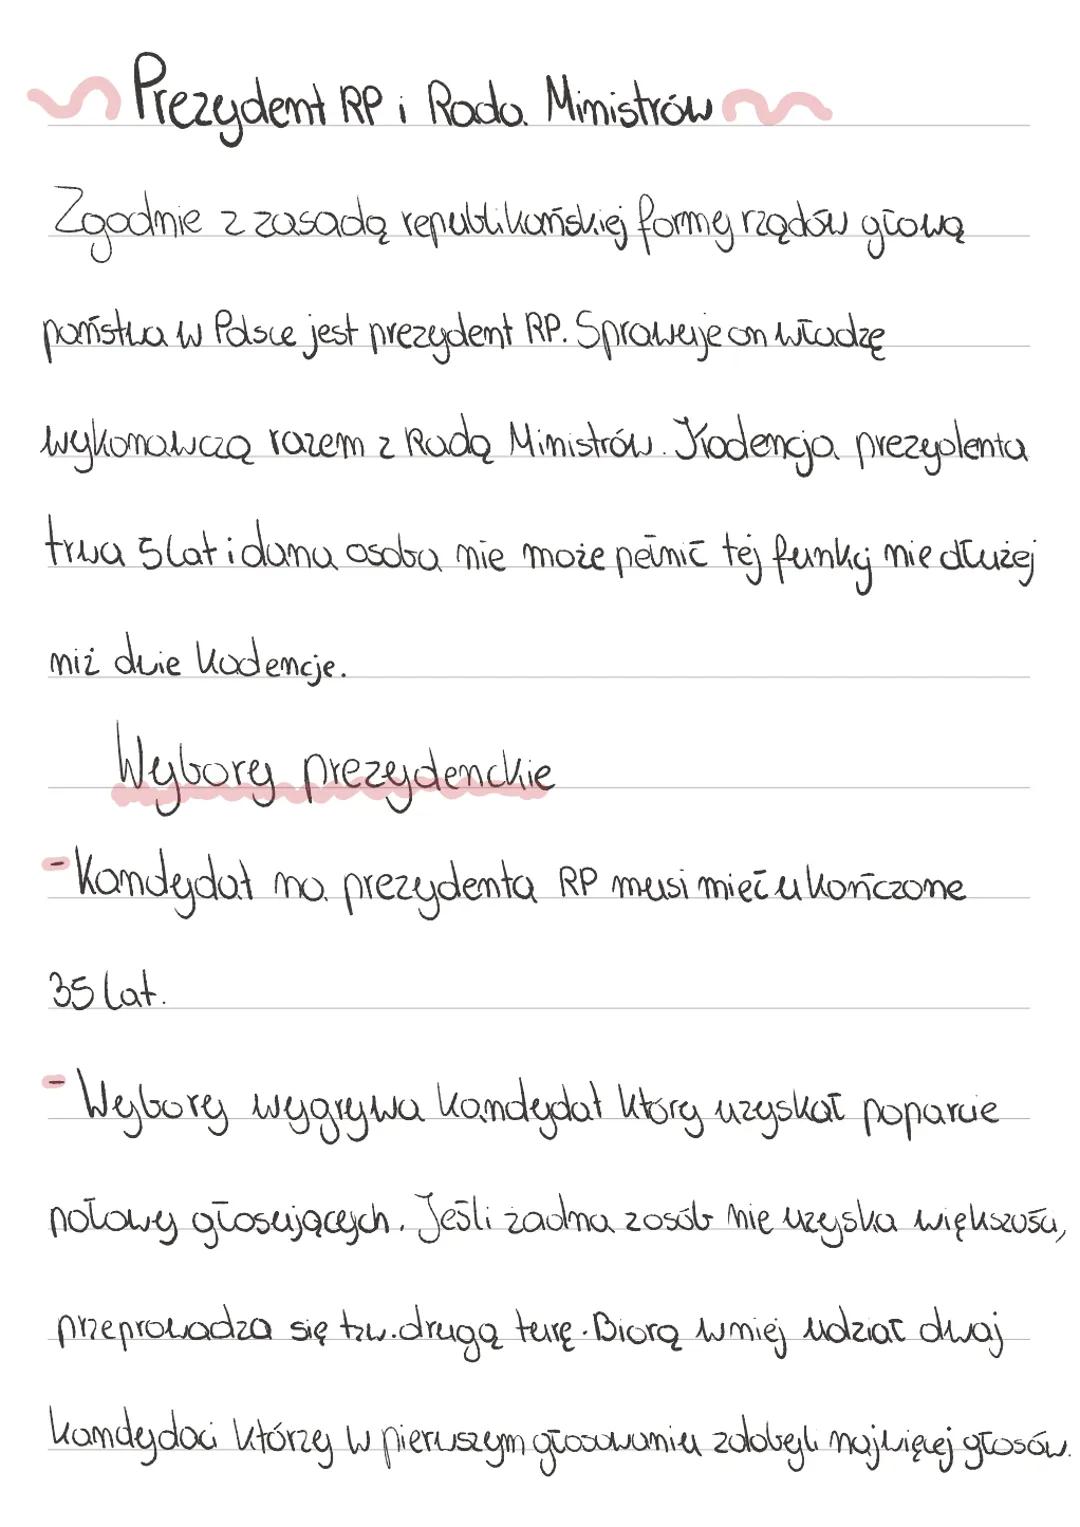 Prezydent RP i Rada Ministrów
Zgodnie z zasadą republikańskiej formy rządów głową
państwa w Polsce jest prezydent RP. Sprawuje on władzę
wykonawczą razem z Radą Ministrów. Kadencja prezydenta
trwa 5 lat i dana osoba nie może pełnić tej funkcji nie dłużej
niż dwie kadencje.
Wybory prezydenckie
- Kandydat na prezydenta RP musi mieć ukończone
35 lat.
- Wybory wygrywa kandydat który uzyskał poparcie
połowy głosujących. Jeśli żadna z osób nie uzyska większości,
przeprowadza się tzw. drugą turę. Biorą w niej udział dwaj
kandydaci którzy w pierwszym głosowaniu zdobyli najwięcej głosów.